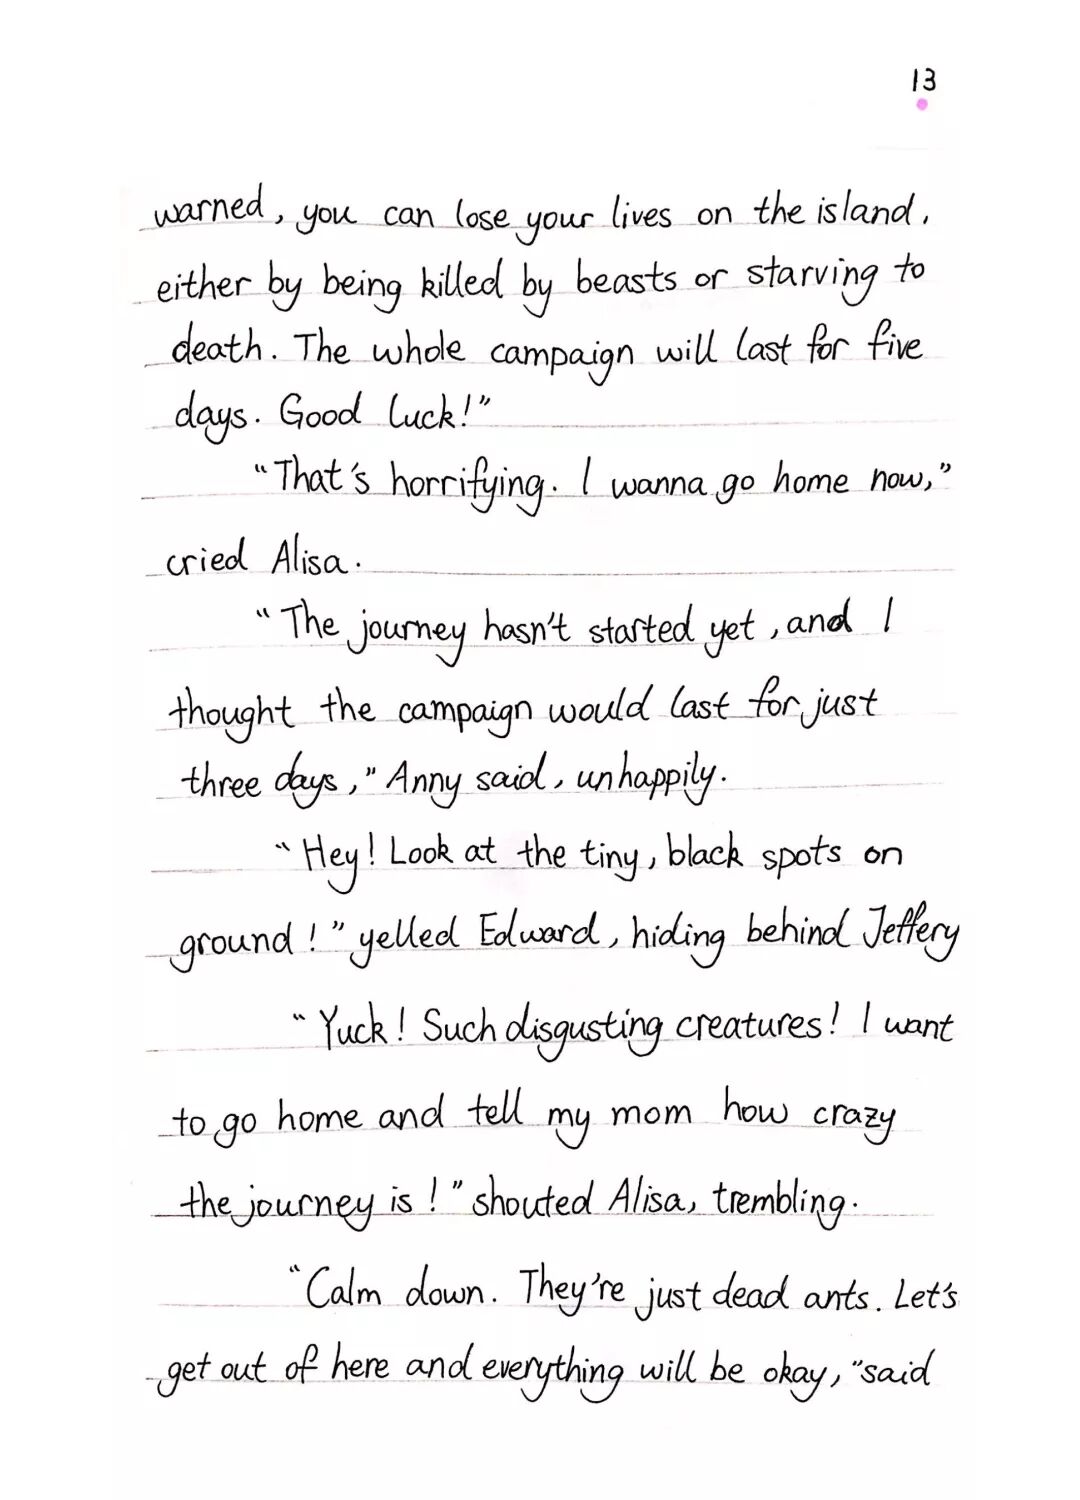 13
warned, you can lose your lives on the island,
either by being killed by beasts or starving to
death. The whole campaign will last for five
days. Good luck!"
"That's horrifying. I wanna go home now,"
cried Alisa.
"The journey hasn't started yet, and I
thought the campaign would last for just
three days," Anny said, unhappily.
"Hey! Look at the tiny, black spots on
ground!" yelled Edward, hiding behind Jeffery
"Yuck! Such disgusting creatures! I want
to go home and tell my mom how crazy
the journey is!" shouted Alisa, trembling.
"Calm down. They're just dead ants. Let's
get out of here and everything will be okay, "said